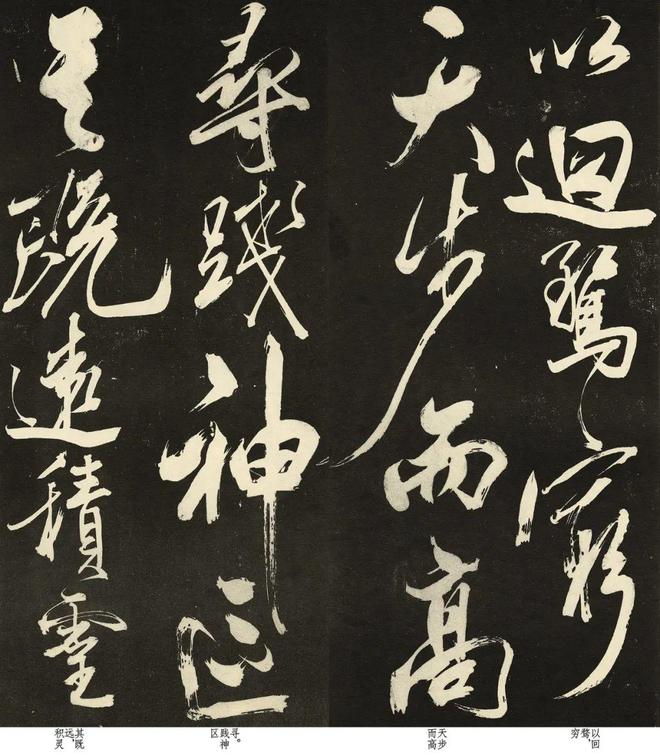 以迴鶩窮
天步而高
尋踐神區
其既遠積靈
以回
骛穷
天步
而高
寻。
践神
区
其既
远,
积灵